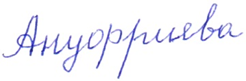 Ануфриева